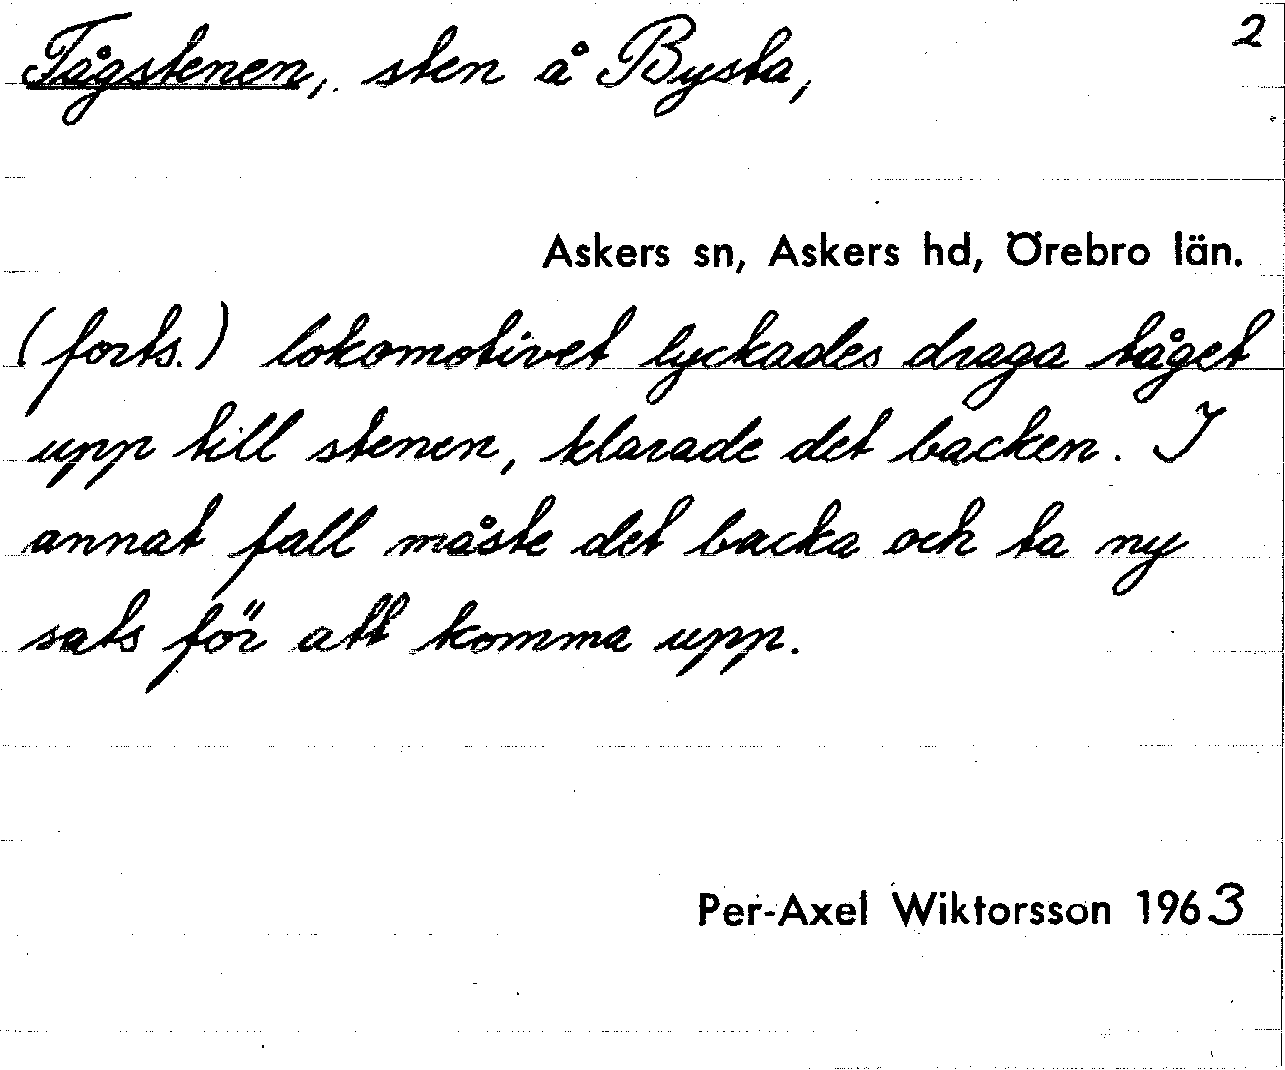 Tågstenen, sten å Bysta, 2
Askers sn, Askers hd, Örebro län.
(forts.) lokomotivet lyckades draga tåget
upp till stenen, klarade det backen. I
annat fall måste det backa och ta ny
sats för att komma upp.
Per-Axel Wiktorsson 1963